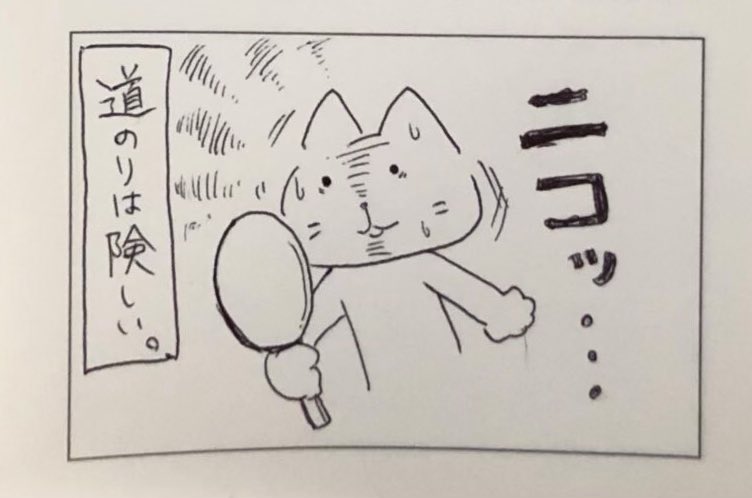 ニコッ...
道のりは険しい。